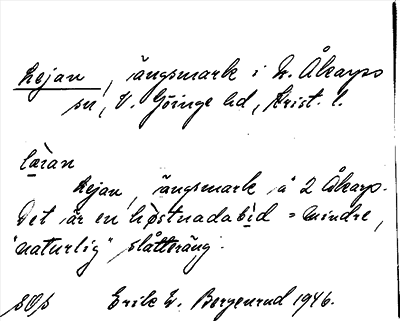 Lejan, ängsmark i N. Åkarps
sn, V. Göinge hd, Krist. l.
læ̀ran
Lejan, ängsmark å 2 Åkarp.
Det är en høstnadabìd = mindre,
"naturlig" slåtteräng.
Erik W. Borgenrud 1946.